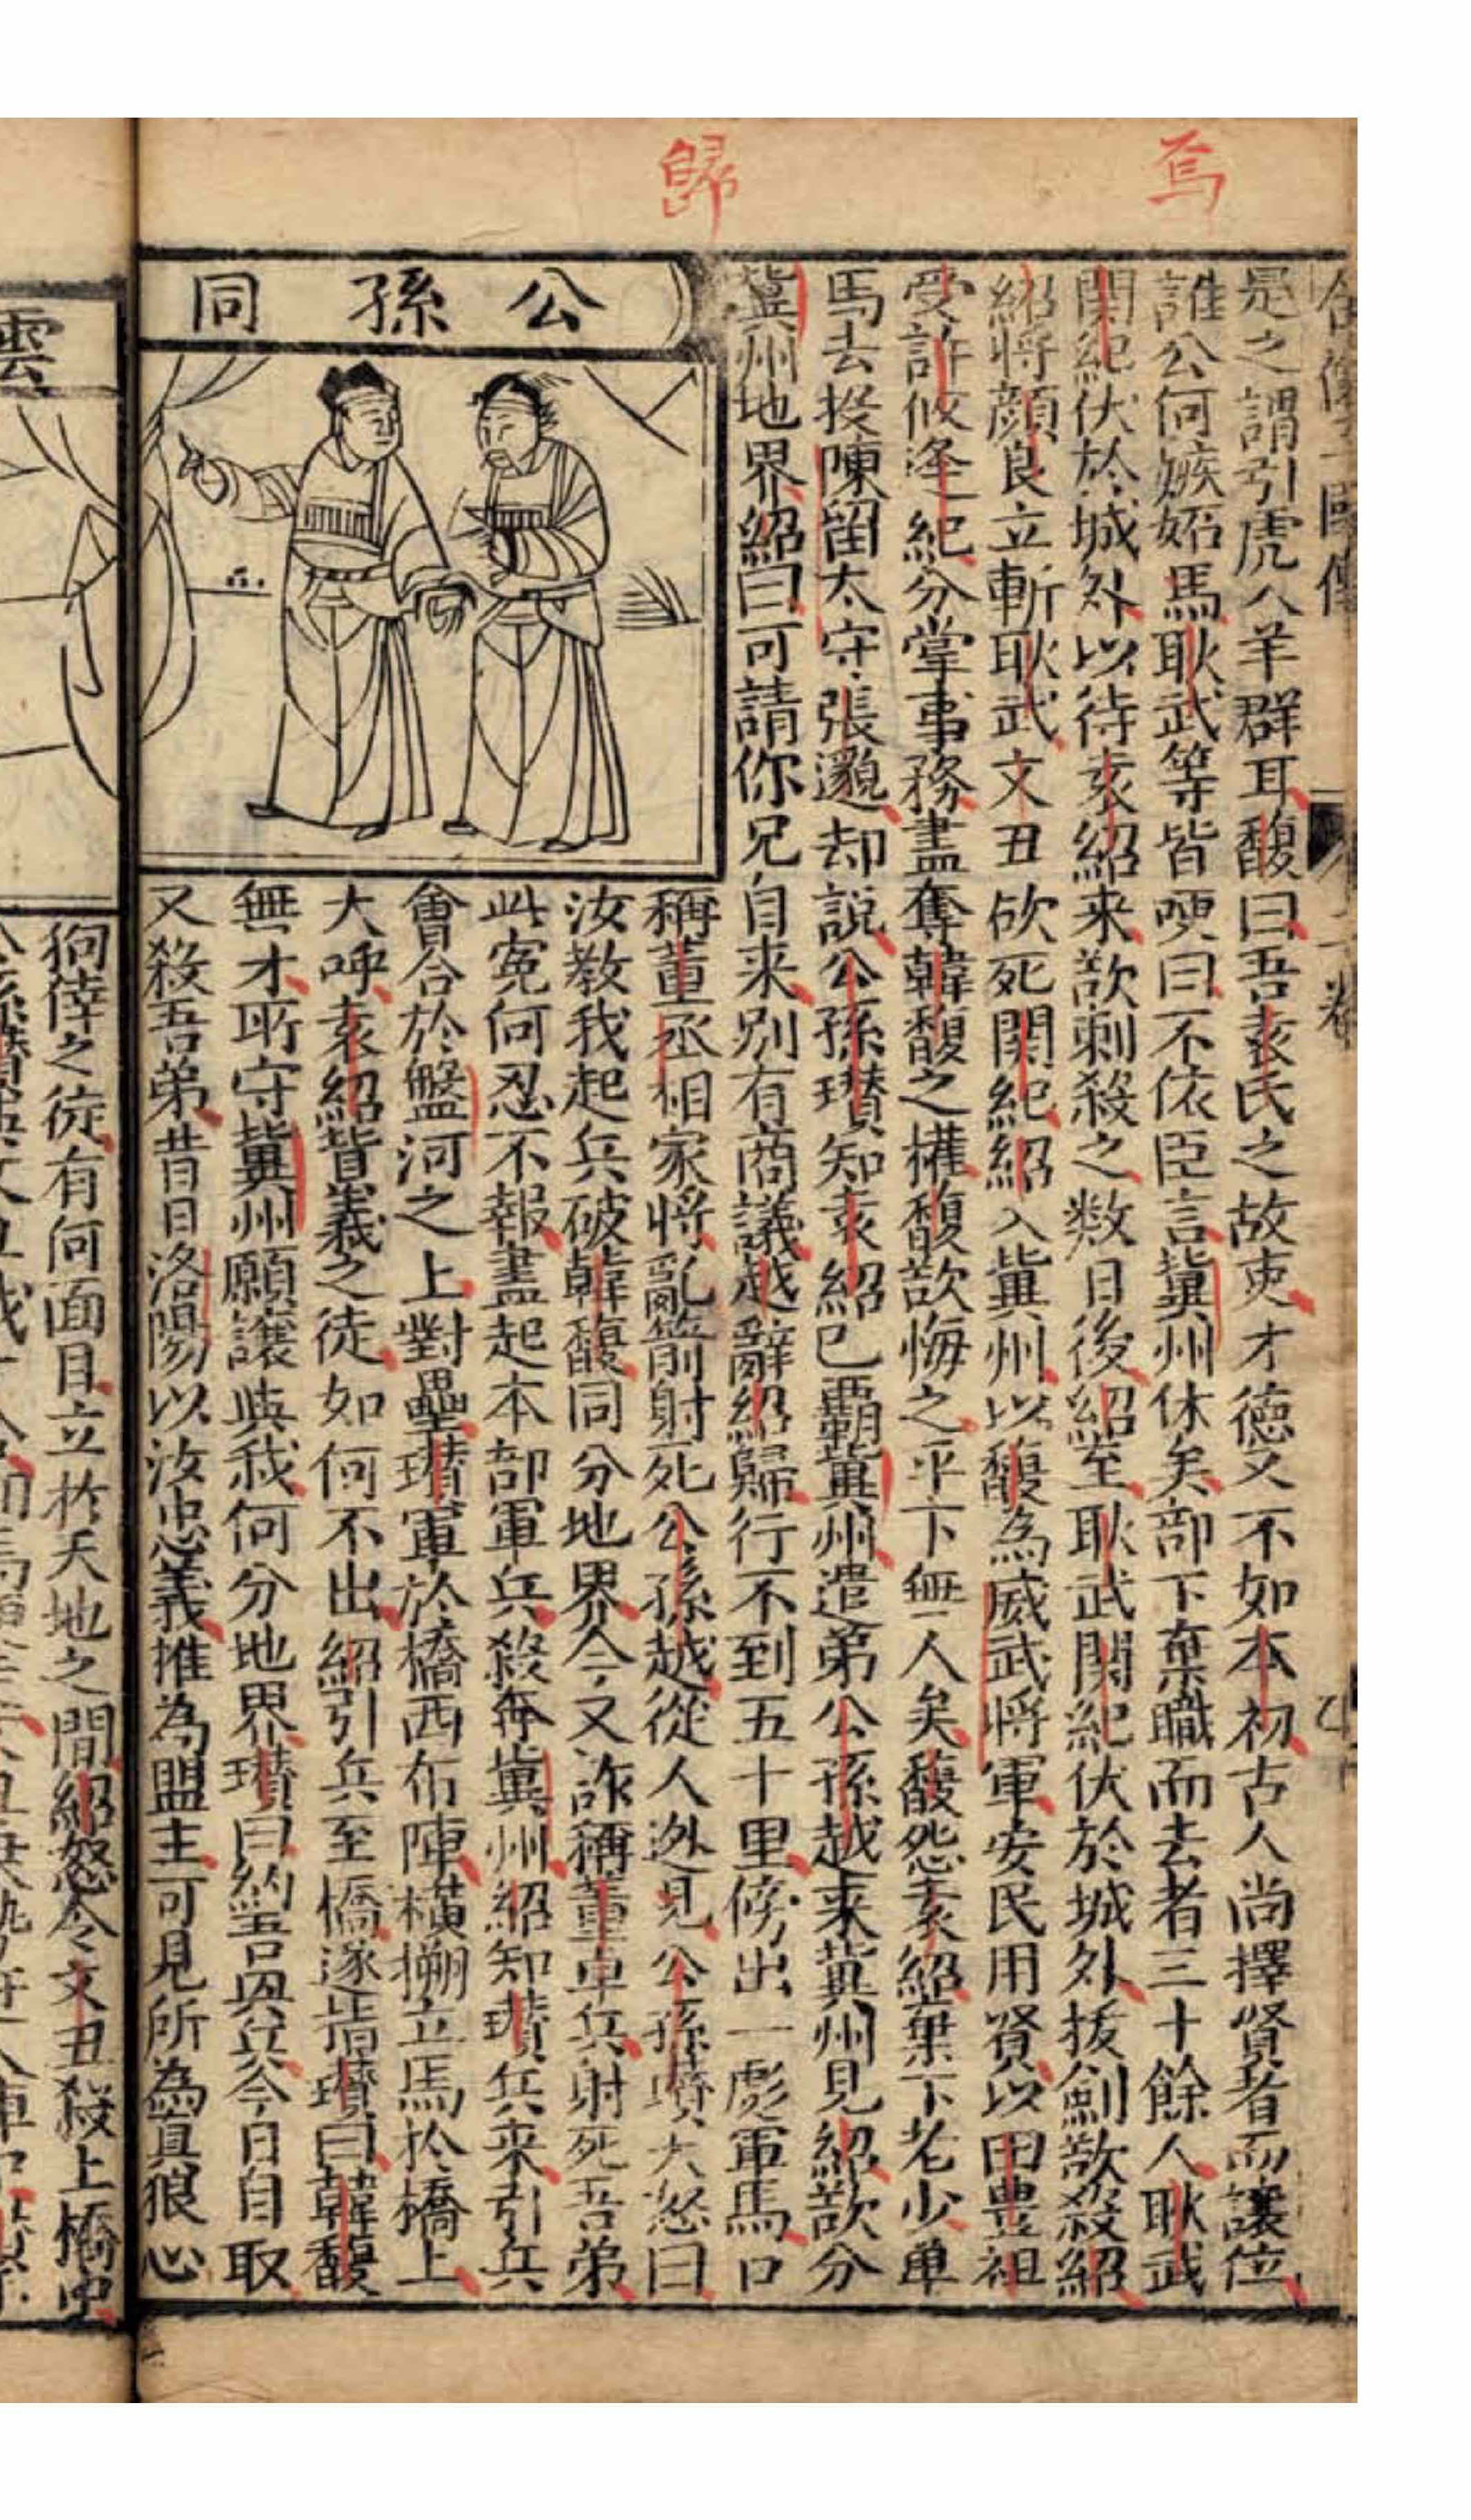 歸
焉
是之謂引虎入羊群耳馥曰吾袁氏之故吏才德又不如本初古人尚擇賢者而讓位
誰公何嫉妬馬耿武等皆哽曰不依臣言冀州休矣部下棄職而去者三十餘人耿武
関紀伏於城外以待袁紹来欲刺殺之数日後紹至耿武関紀伏於城外抜劍欲殺紹
紹将顔良立斬耿武文丑砍死関紀紹入冀州以馥為威武将軍安民用賢以田豊祖
受許攸逄紀分掌事務盡奪韓馥之權馥欲悔之乎下無一人矣馥怨袁紹棄下老少单
馬去投陳留太守張邈却説公孫瓚知袁紹已覇冀州遣弟公孫越来冀州見紹欲分
冀州地界紹曰可請你兄自来別有商議越辭紹歸行不到五十里傍出一彪軍馬口
稱董丞相家将亂箭射死公孫越從人迯見公孫瓚大怒曰
汝教我起兵破韓馥同分地界今又詐稱董卓兵射死吾弟
此寃何忍不報盡起本部軍兵殺奔冀州紹知瓚兵来引兵
會合於盤河之上對壘瓚軍於橋西布陣橫搠立馬於橋上
大呼袁紹背義之徒如何不出紹引兵至橋邊指瓚曰韓馥
無才所守冀州願讓與我何分地界瓚曰約吾與兵今日自取
又殺吾弟昔日洛陽以汝忠義推為盟主可見所為真狼心
公孫同
狥倖之徒有何面目立於天地之間紹怒令文丑殺上橋
雲